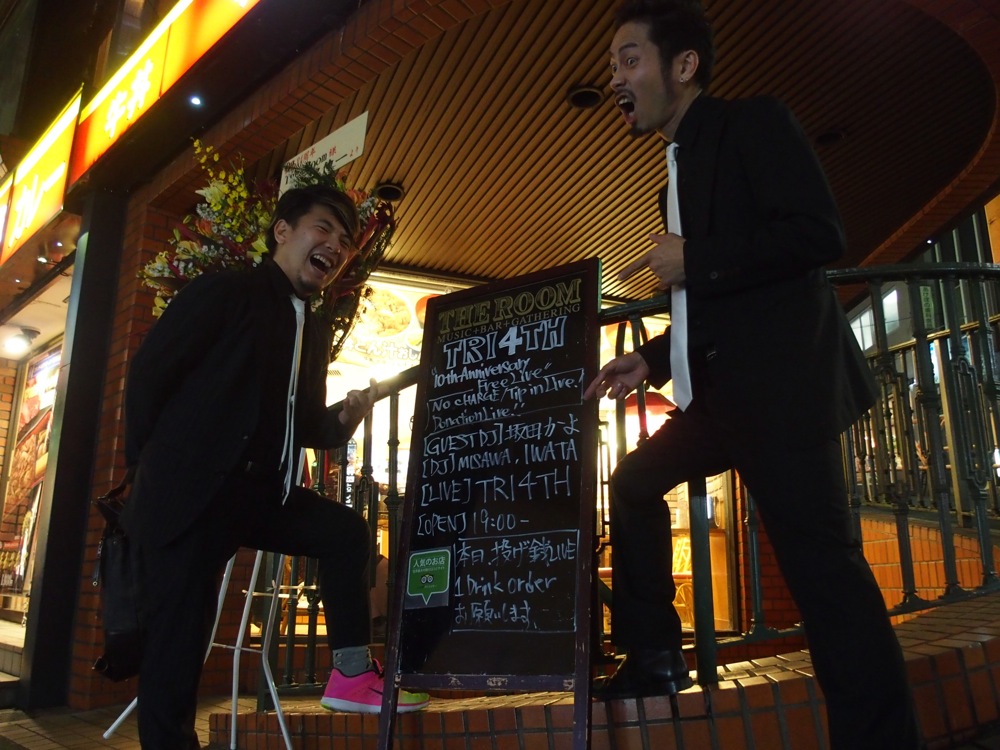 牛丼
カレー
THE ROOM
MUSIC+BAR+GATHERING
TRI4TH
"10th Anniversary
Free Live"
No CHARGE/Tip in Live!
Donation Live!!
[GUEST DJ] 坂田かよ
[DJ] MISAWA, IWATA
[LIVE] TRI4TH
[OPEN] 19:00-
本日、投げ銭LIVE
1 Drink order
お願いします、
人気のお店